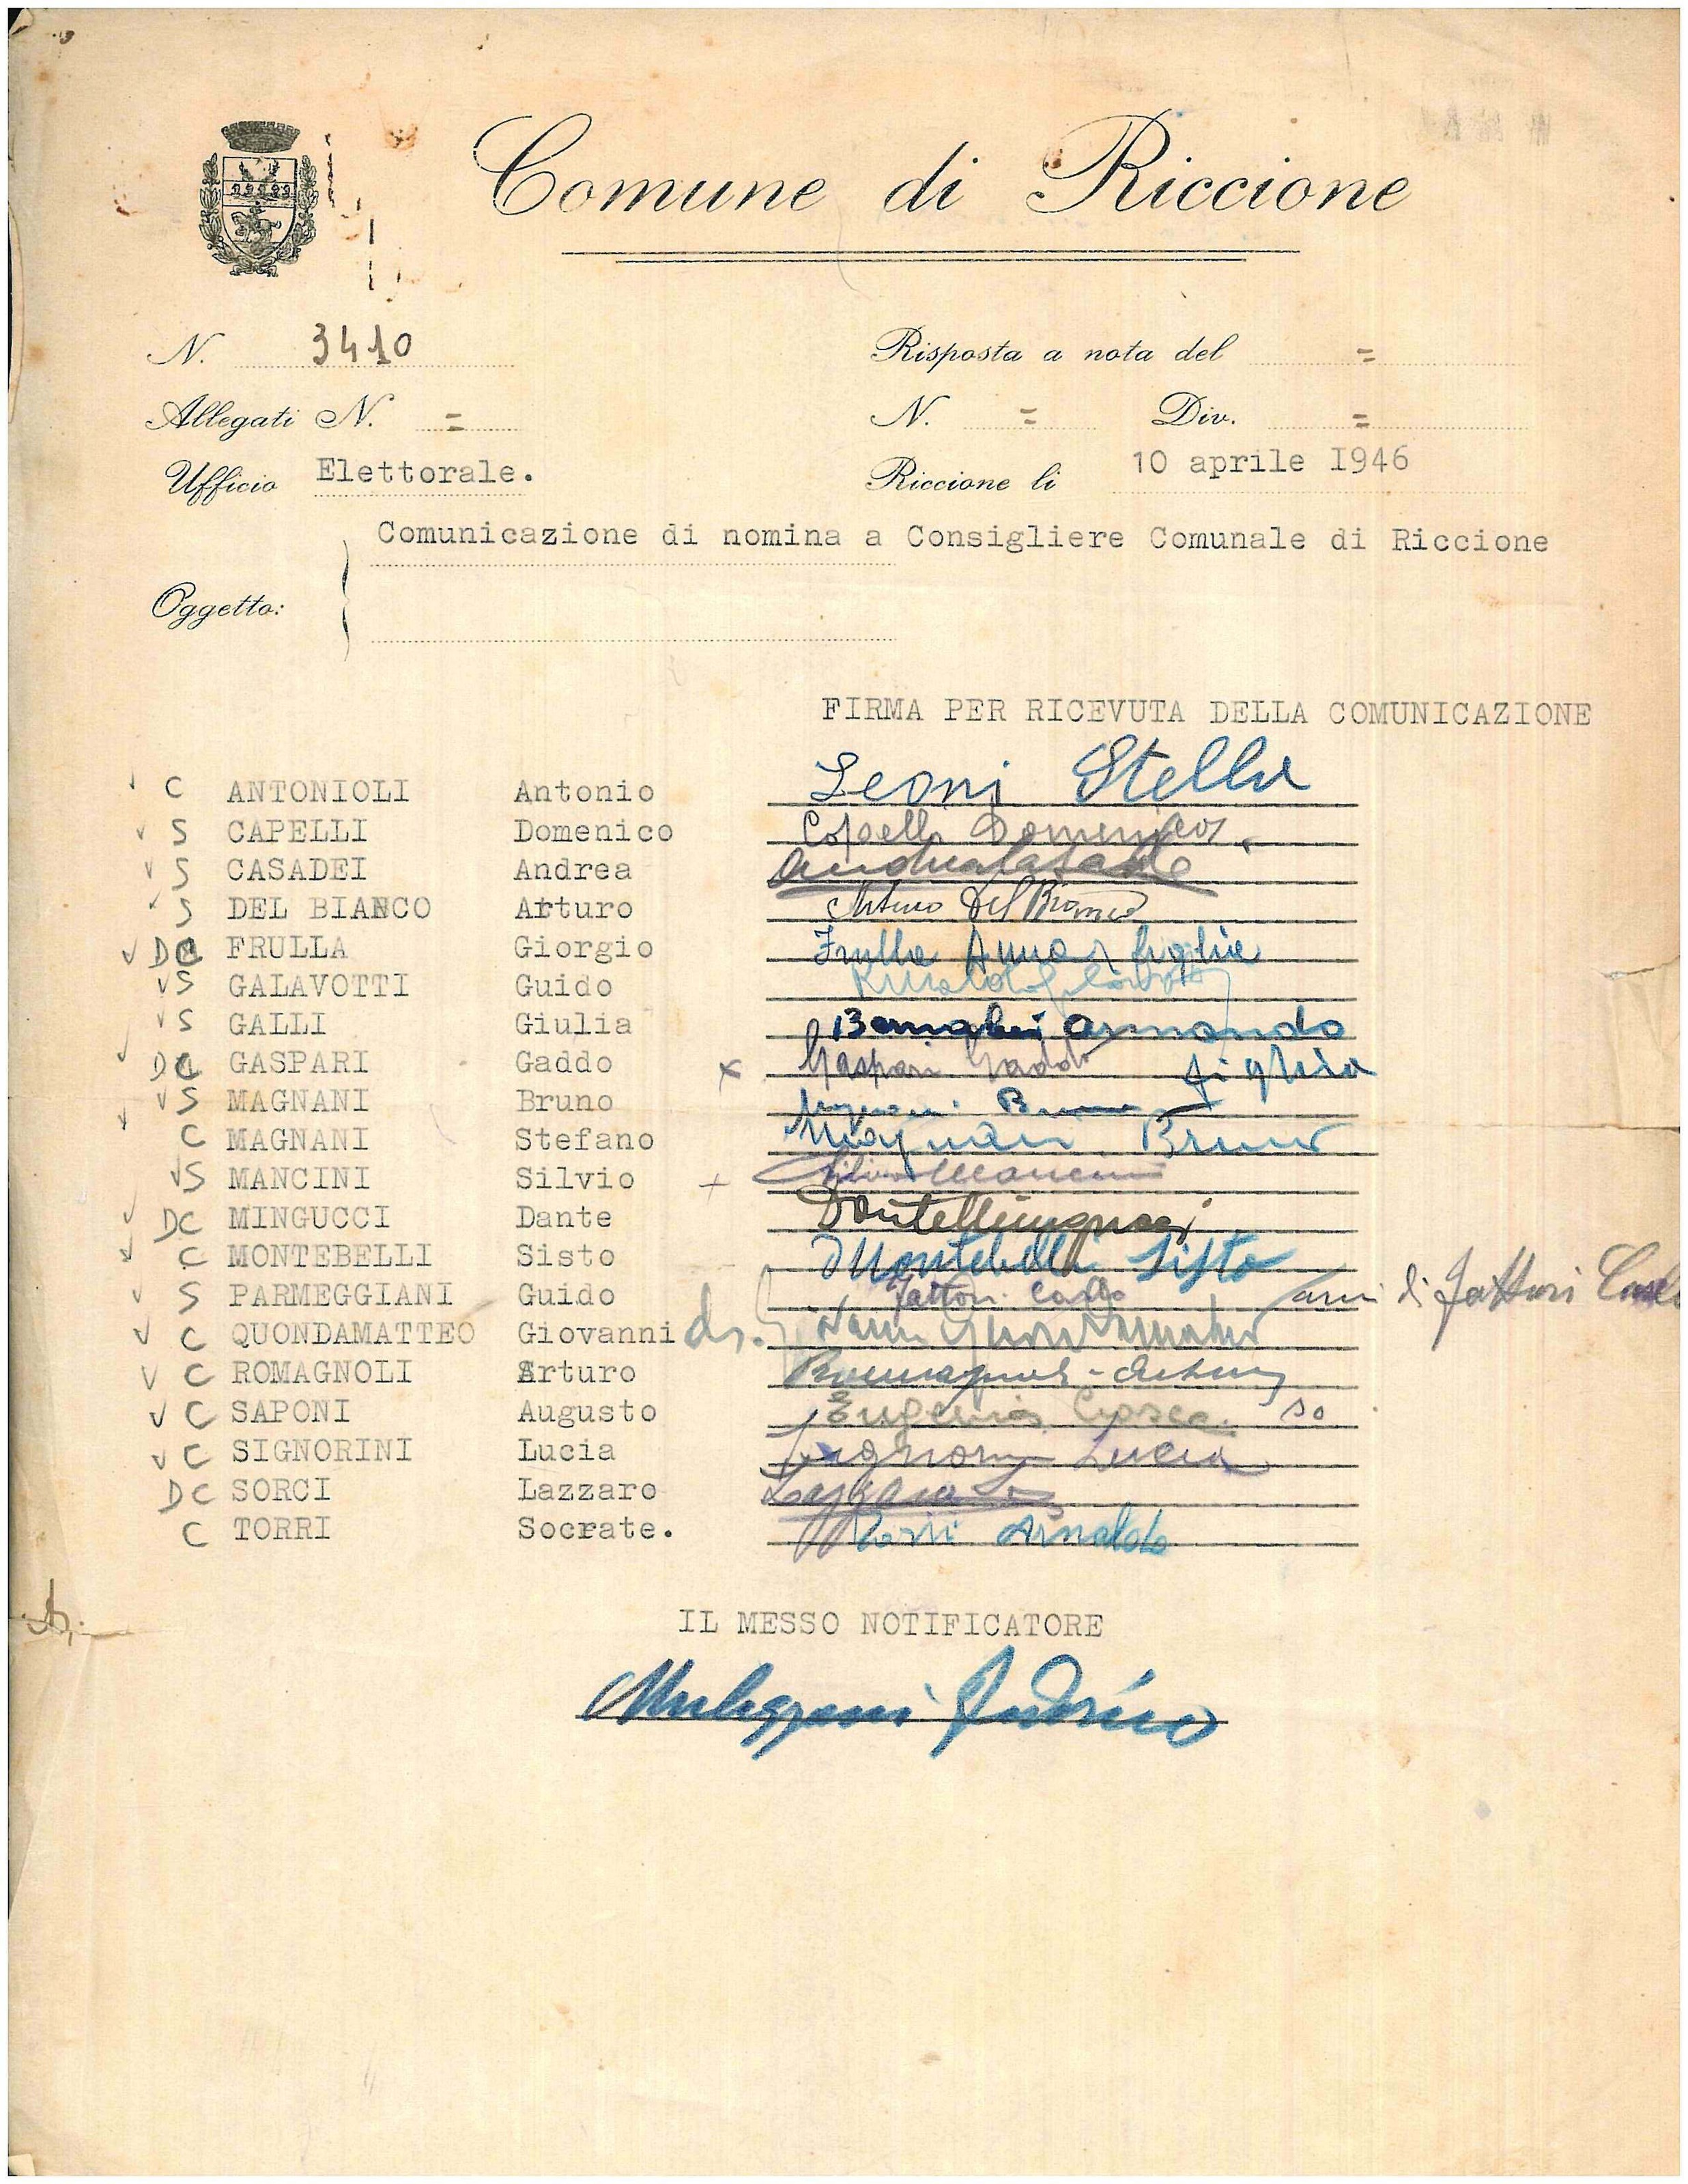 Comune di Riccione
N. 3410
Risposta a nota del =
Allegati N. =
N. = Div. =
Ufficio Elettorale.
Riccione li 10 aprile I946
Comunicazione di nomina a Consigliere Comunale di Riccione
Oggetto:
FIRMA PER RICEVUTA DELLA COMUNICAZIONE
C ANTONIOLI Antonio Leoni Stella
S CAPELLI Domenico Capelli Domenico
S CASADEI Andrea Andrea Casadei
S DEL BIANCO Arturo Arturo Del Bianco
DC FRULLA Giorgio Frulla Anna figlia
S GALAVOTTI Guido
S GALLI Giulia Armando
DC GASPARI Gaddo x Gaspari Gaddo figlia
S MAGNANI Bruno Magnani Bruno
C MAGNANI Stefano Magnani Bruno
S MANCINI Silvio + Silvio Mancini
DC MINGUCCI Dante Dante Mingucci
C MONTEBELLI Sisto Montebelli Sisto
S PARMEGGIANI Guido Fattori Carlo di Fattori Carlo
C QUONDAMATTEO Giovanni Quondamatteo
C ROMAGNOLI Arturo Romagnoli Arturo
C SAPONI Augusto Eugenia
C SIGNORINI Lucia Signorini Lucia
DC SORCI Lazzaro
C TORRI Socrate. Arnaldo
IL MESSO NOTIFICATORE